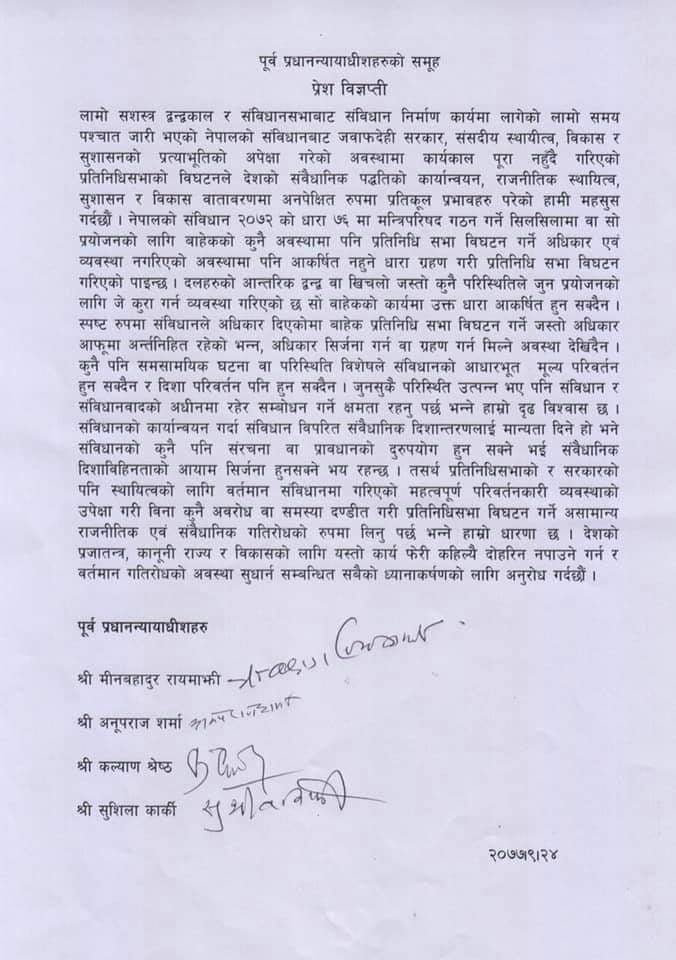 पूर्व प्रधानन्यायाधीशहरुको समूह
प्रेश विज्ञप्ती
लामो सशस्त्र द्वन्द्वकाल र संविधानसभाबाट संविधान निर्माण कार्यमा लागेको लामो समय
पश्चात जारी भएको नेपालको संविधानबाट जवाफदेही सरकार, संसदीय स्थायीत्व, विकास र
सुशासनको प्रत्याभूतिको अपेक्षा गरेको अवस्थामा कार्यकाल पूरा नहुँदै गरिएको
प्रतिनिधिसभाको विघटनले देशको संवैधानिक पद्धतिको कार्यान्वयन, राजनीतिक स्थायित्व,
सुशासन र विकास वाताबरणमा अनपेक्षित रुपमा प्रतिकूल प्रभावहरु परेको हामी महसुस
गर्दछौं । नेपालको संविधान २०७२ को धारा ७६ मा मन्त्रिपरिषद गठन गर्ने सिलसिलामा वा सो
प्रयोजनको लागि बाहेकको कुनै अवस्थामा पनि प्रतिनिधि सभा विघटन गर्ने अधिकार एवं
व्यवस्था नगरिएको अवस्थामा पनि आकर्षित नहुने धारा ग्रहण गरी प्रतिनिधि सभा विघटन
गरिएको पाइन्छ । दलहरुको आन्तरिक द्वन्द्व वा खिचलो जस्तो कुनै परिस्थितिले जुन प्रयोजनको
लागि जे कुरा गर्न व्यवस्था गरिएको छ सो वाहेकको कार्यमा उक्त धारा आकर्षित हुन सक्दैन ।
स्पष्ट रुपमा संविधानले अधिकार दिएकोमा बाहेक प्रतिनिधि सभा विघटन गर्ने जस्तो अधिकार
आफूमा अर्न्तनिहित रहेको भन्न, अधिकार सिर्जना गर्न वा ग्रहण गर्न मिल्ने अवस्था देखिँदैन ।
कुनै पनि समसामयिक घटना वा परिस्थिति विशेषले संविधानको आधारभूत मूल्य परिवर्तन
हुन सक्दैन र दिशा परिवर्तन पनि हुन सक्दैन । जुनसुकै परिस्थिति उत्पन्न भए पनि संविधान र
संविधानवादको अधीनमा रहेर सम्बोधन गर्ने क्षमता रहनु पर्छ भन्ने हाम्रो दृढ विश्वास छ ।
संविधानको कार्यान्वयन गर्दा संविधान विपरित संवैधानिक दिशान्तरणलाई मान्यता दिने हो भने
संविधानको कुनै पनि संरचना वा प्रावधानको दुरुपयोग हुन सक्ने भई संवैधानिक
दिशाविहिनताको आयाम सिर्जना हुनसक्ने भय रहन्छ । तसर्थ प्रतिनिधिसभाको र सरकारको
पनि स्थायित्वको लागि वर्तमान संविधानमा गरिएको महत्वपूर्ण परिवर्तनकारी व्यवस्थाको
उपेक्षा गरी विना कुनै अवरोध वा समस्या दण्डीत गरी प्रतिनिधिसभा विघटन गर्ने असामान्य
राजनीतिक एवं संवैधानिक गतिरोधको रुपमा लिनु पर्छ भन्ने हाम्रो धारणा छ । देशको
प्रजातन्त्र, कानूनी राज्य र विकासको लागि यस्तो कार्य फेरी कहिल्यै दोहरिन नपाउने गर्न र
वर्तमान गतिरोधको अवस्था सुधार्न सम्बन्धित सबैको ध्यानाकर्षणको लागि अनुरोध गर्दछौं ।
पूर्व प्रधानन्यायाधीशहरु
श्री मीनबहादुर रायमाझी
श्री अनूपराज शर्मा
श्री कल्याण श्रेष्ठ
श्री सुशिला कार्की
२०७७।९।२४